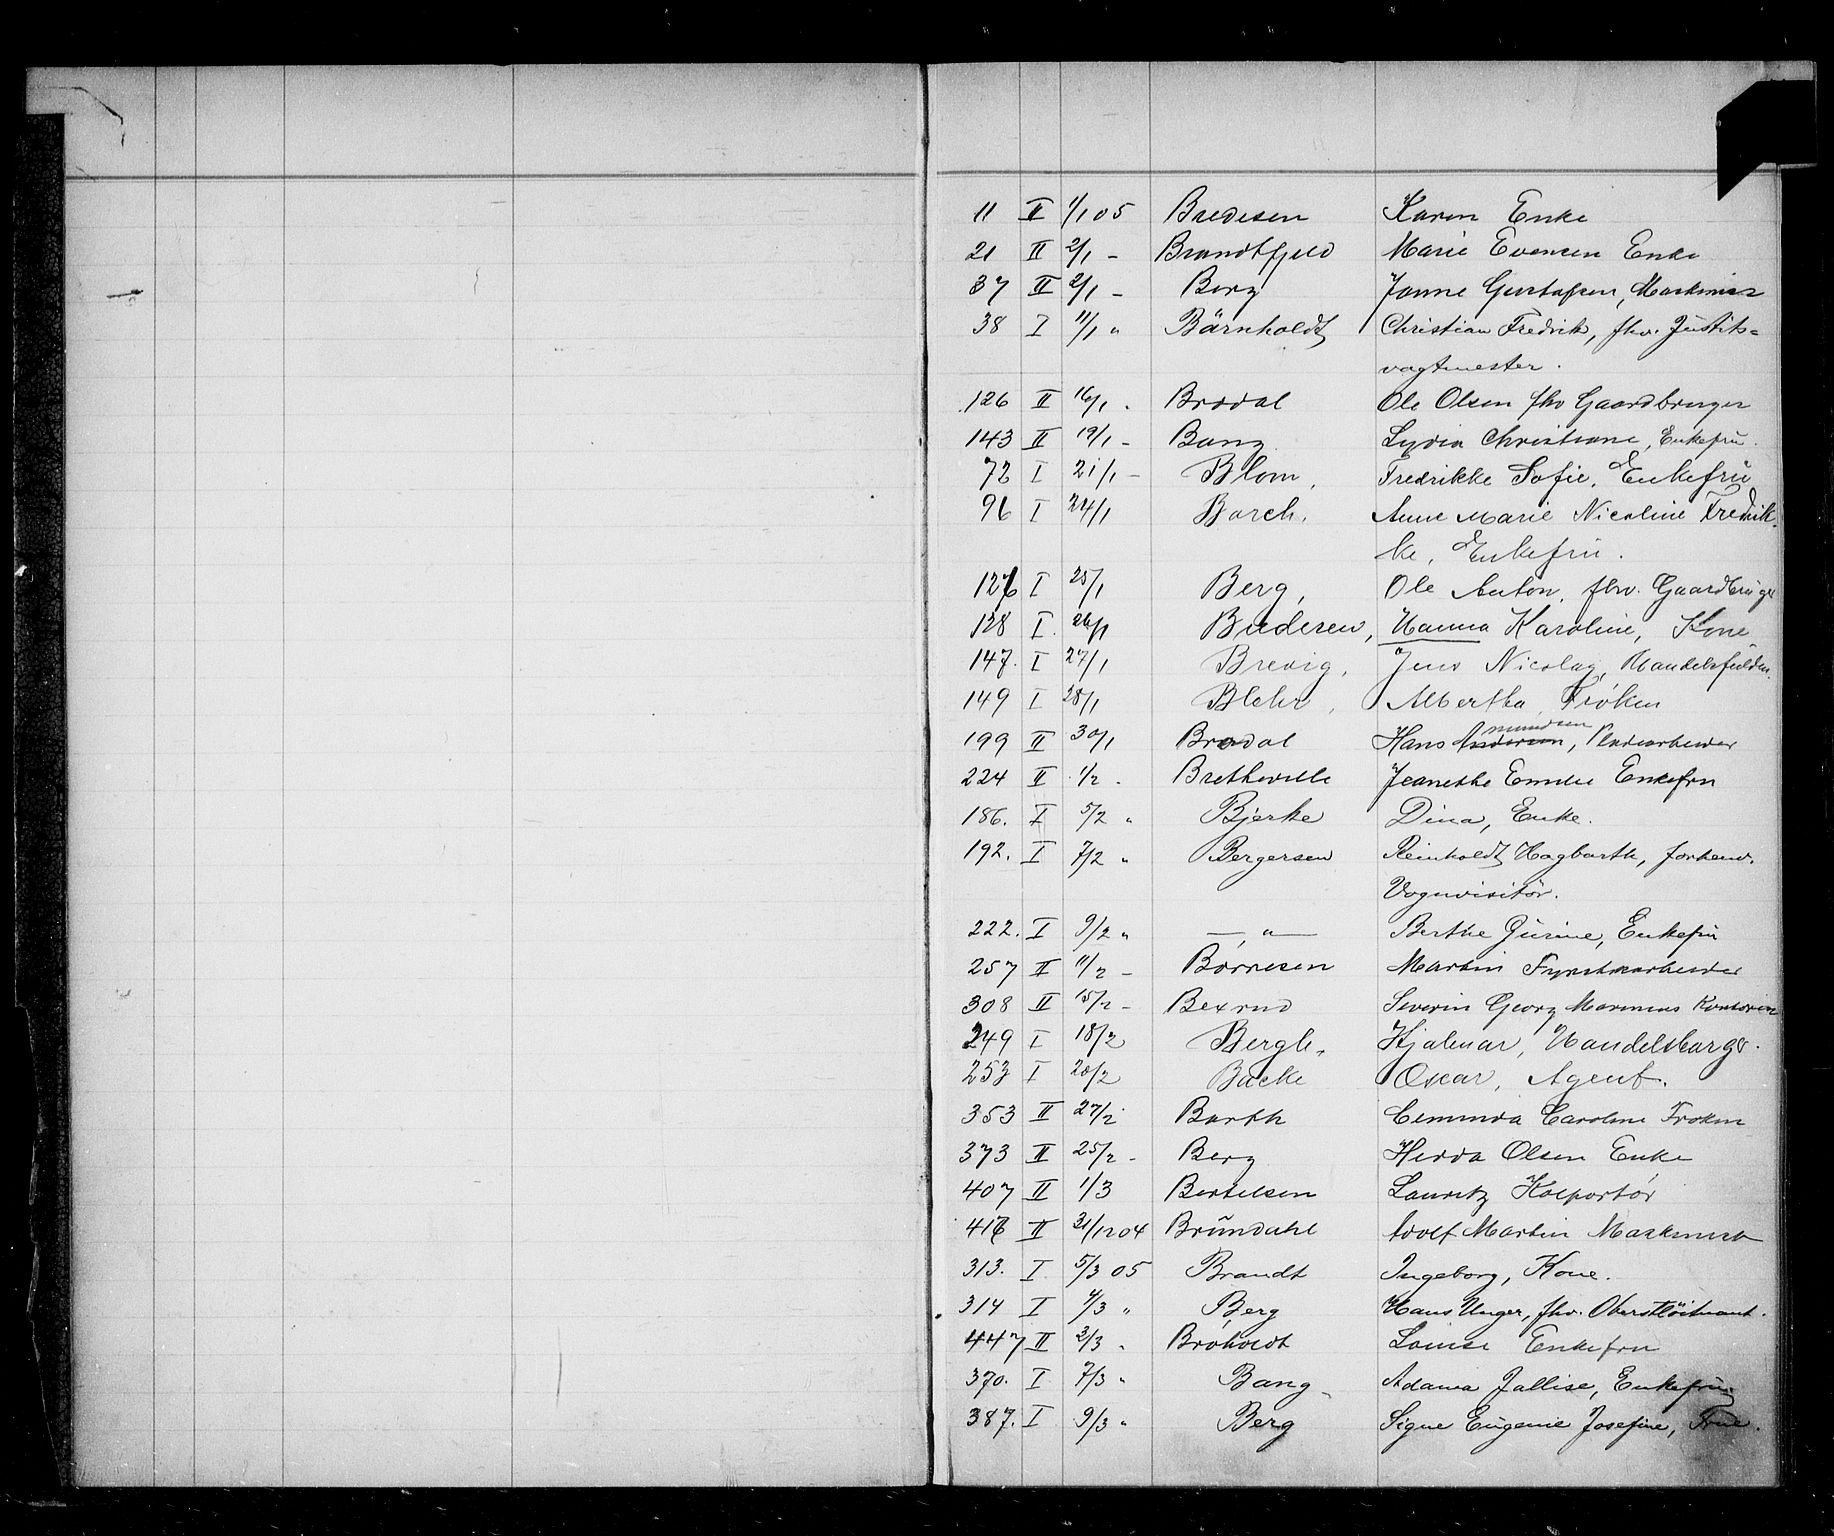 11 II 1/1 05 Bredesen Karen Enke
21 II 2/1 - Brandtfjeld Marie Evensen Enke
37 II 2/1 - Berg Janne Gustafsen, Maskinist
38 I 11/1 " Bärnholdt Christian Fredrik, fhv. Justits=
vagtmester.
126 II 16/1 . Brodal Ole Olsen fhv Gaardbruger
143 II 19/1 - Bang Lydia Christiane, Enkefru.
72 I 21/1 - Blom, Fredrikke Sofie, Enkefrü
96 I 24/1 Borch, Anne Marie Nicoline Fredrik
ke, Enkefrü.
126 I 25/1 Berg, Ole Anton, fhv. Gaardbrüger
128 I. 26/1 Budesen, Hanna Karoline, Kone
147. I 27/1 Brevig, Jens Nicolay, Handelsfuldm.
149 I 28/1 Blehr, Albertha, Frøken
199 II 30/1 Brodal Hans Andersen mundsen, Pladsarbeider
224 II 1/2 . Bretteville Jeanethe Emilie Enkefru
186. I 5/2 " Bjerke Dina, Enke.
192. I 7/2 " Bergersen Reinholdt Hagbarth, forhenv.
Vognvisitør.
222. I 9/2 " — " — Berthe Gurine, Enkefru
257 II 11/2 - Børresen Martin Fyrstikarbeider
308 II 15/2 - Bexrud Severin Georg Marinius Kontorist
249 I 18/2 Bergh, Hjalmar, Handelsborger.
253 I 20/2 Backe Oscar, Agent.
353 II 27/2 Barth Hemmida Caroline Frøken
373 II 25/2 - Berg Hedda Olsen Enke
407 II 1/3 Bertelsen Lauritz Kolportør
416 II 31/12 04 Bründahl Adolf Martin Maskinist
313. I 5/3 05 Brandt Ingeborg, Kone.
314 I 4/3 " Berg Hans Unger, fhv. Oberstløitnant.
447 II 2/3 . Broholdt Louise Enkefru
370. I 7/3 " Bang Adama Jallise, Enkefrü
387. I 9/3 " Berg Signe Eugenie Josefine, Frue.